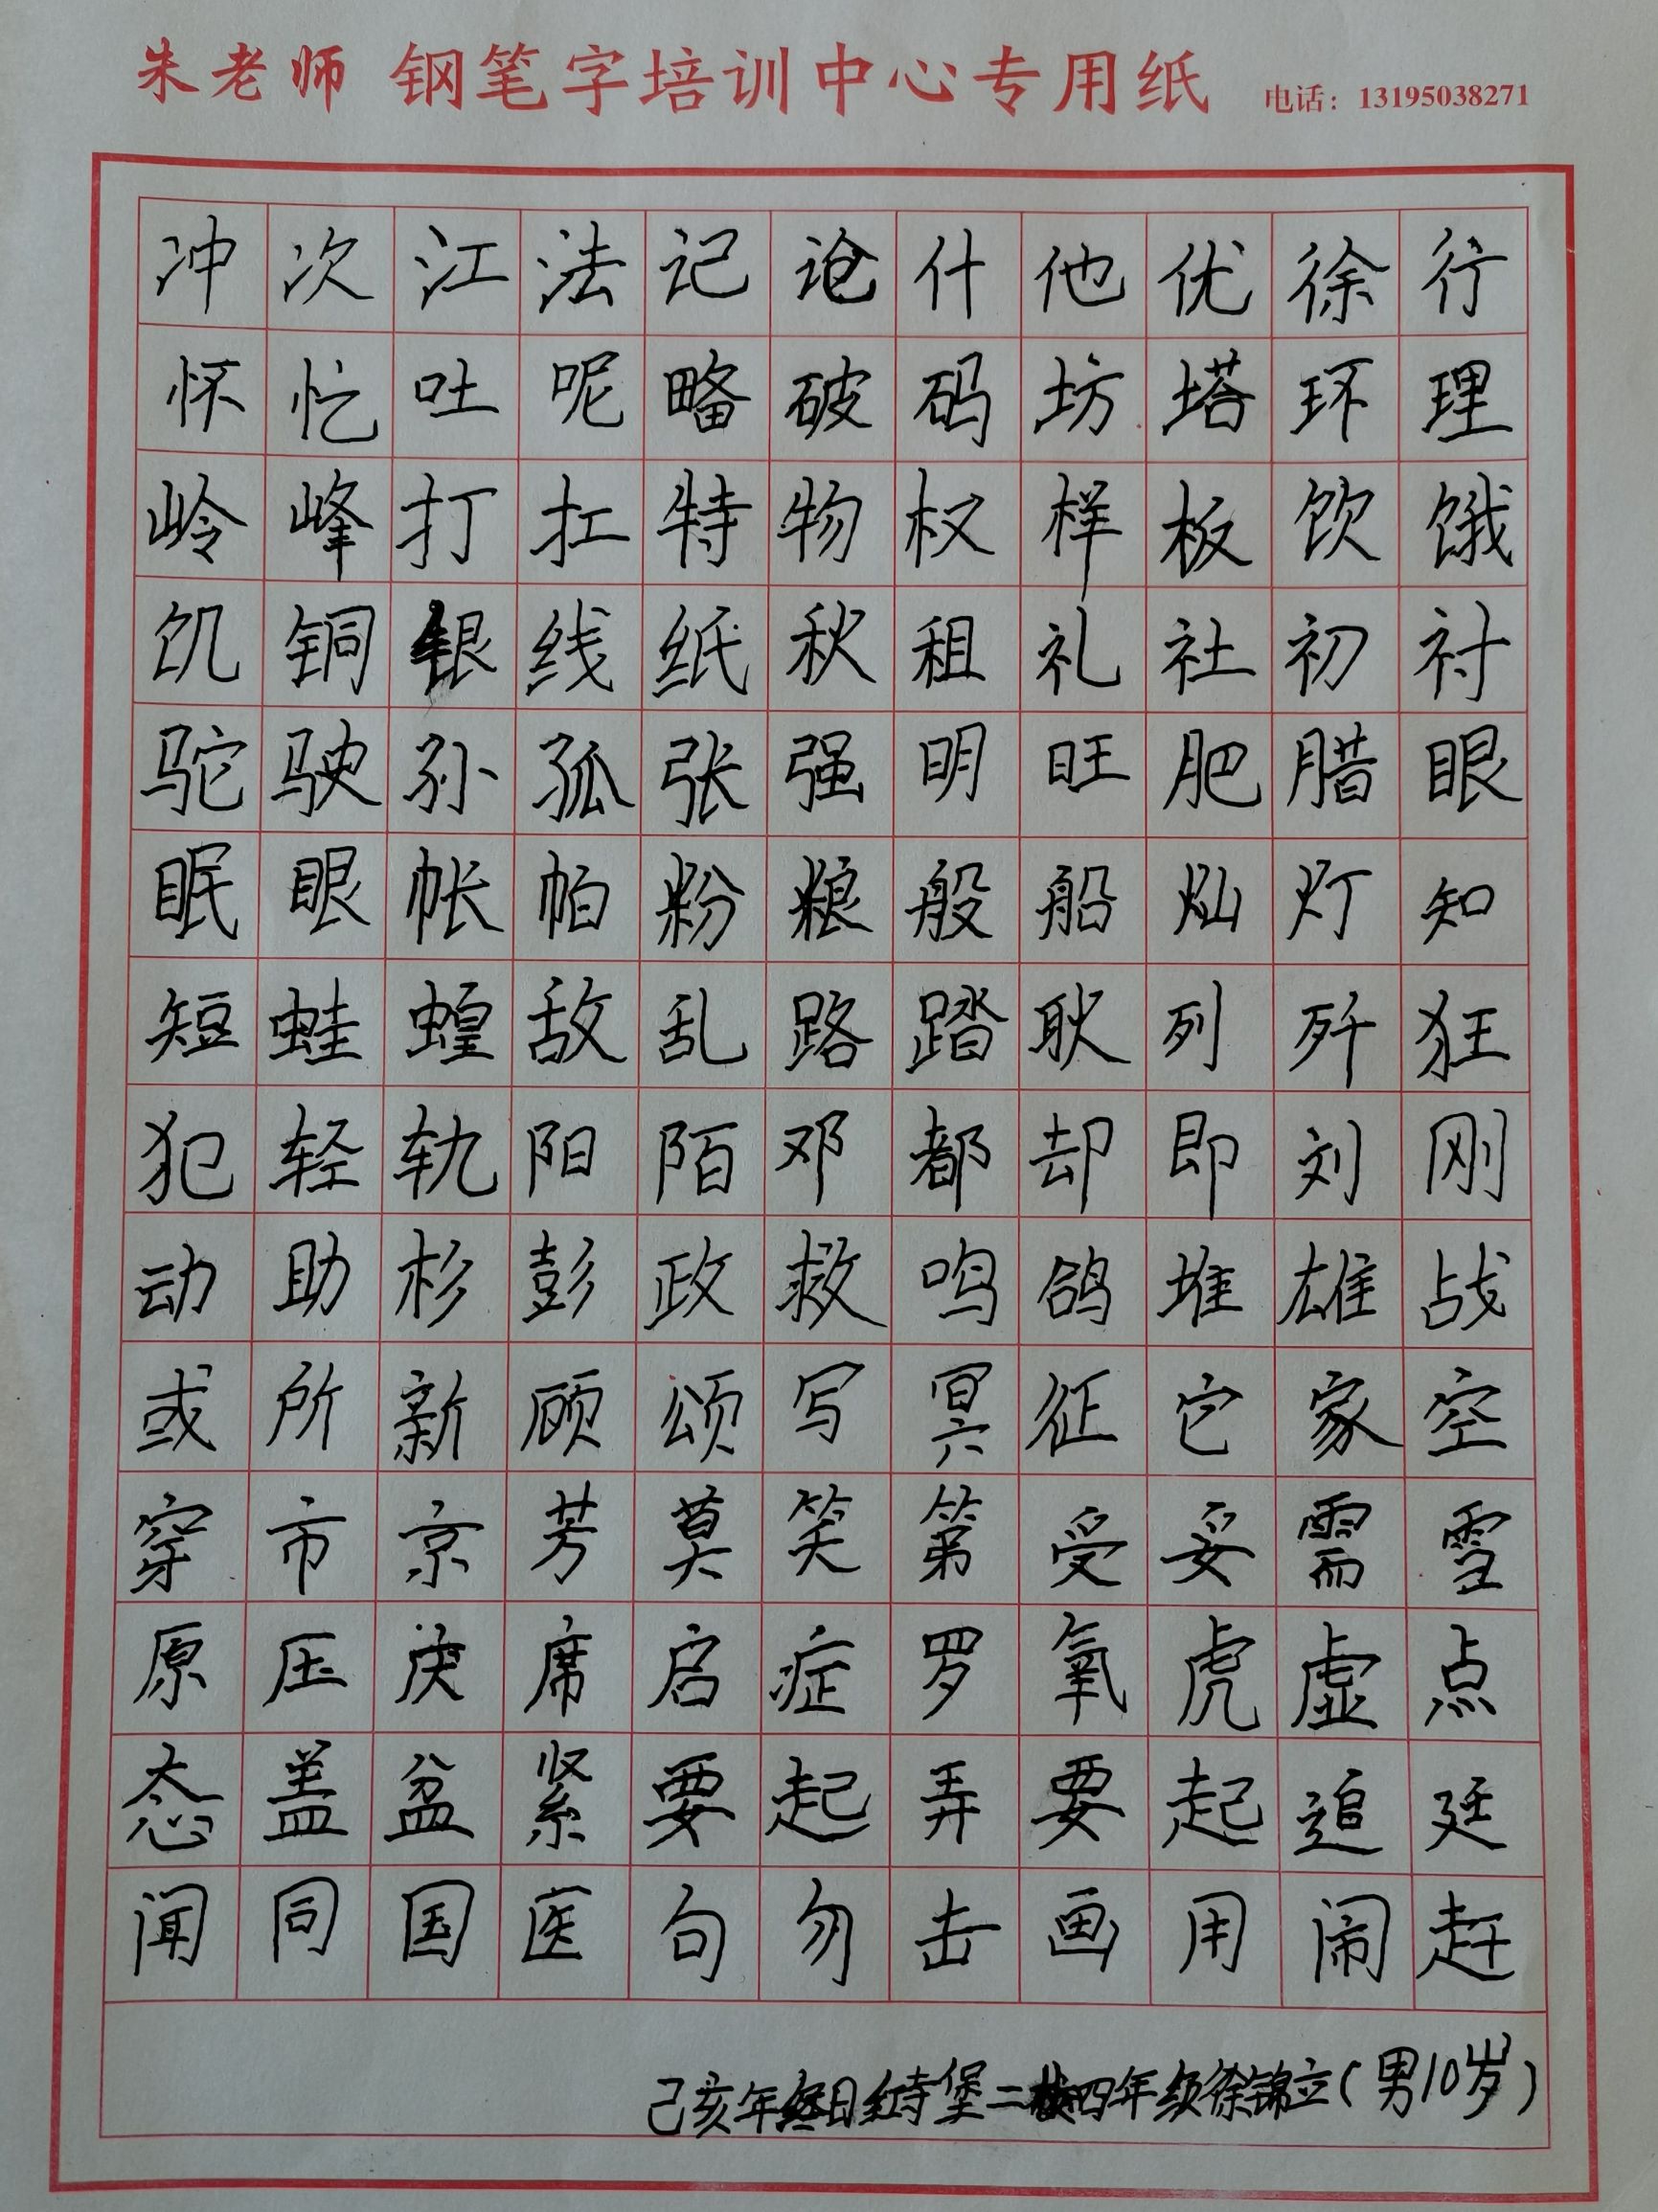 朱老师 钢笔字培训中心专用纸 电话：13195038271
冲次江法记论什他优徐行
怀忆吐呢略破码坊塔环理
岭峰打扛特物权样板饮饿
饥铜银线纸秋租礼社初衬
驼驶孙孤张强明旺肥腊眼
眠眼帐帕粉粮般船灿灯知
短蛙蝗敌乱路踏耿列歼狂
犯轻轨阳陌邓都却即刘刚
动助杉彭政救鸣鸽堆雄战
或所新顾颂写冥征它家空
穿市京芳莫笑第受妥需雪
原压庆席启症罗氧虎虚点
态盖盆紧要起弄要起追廷
闻同国医句勿击画用闹赶
己亥年 日红寺堡二校四年级徐锦立（男10岁）